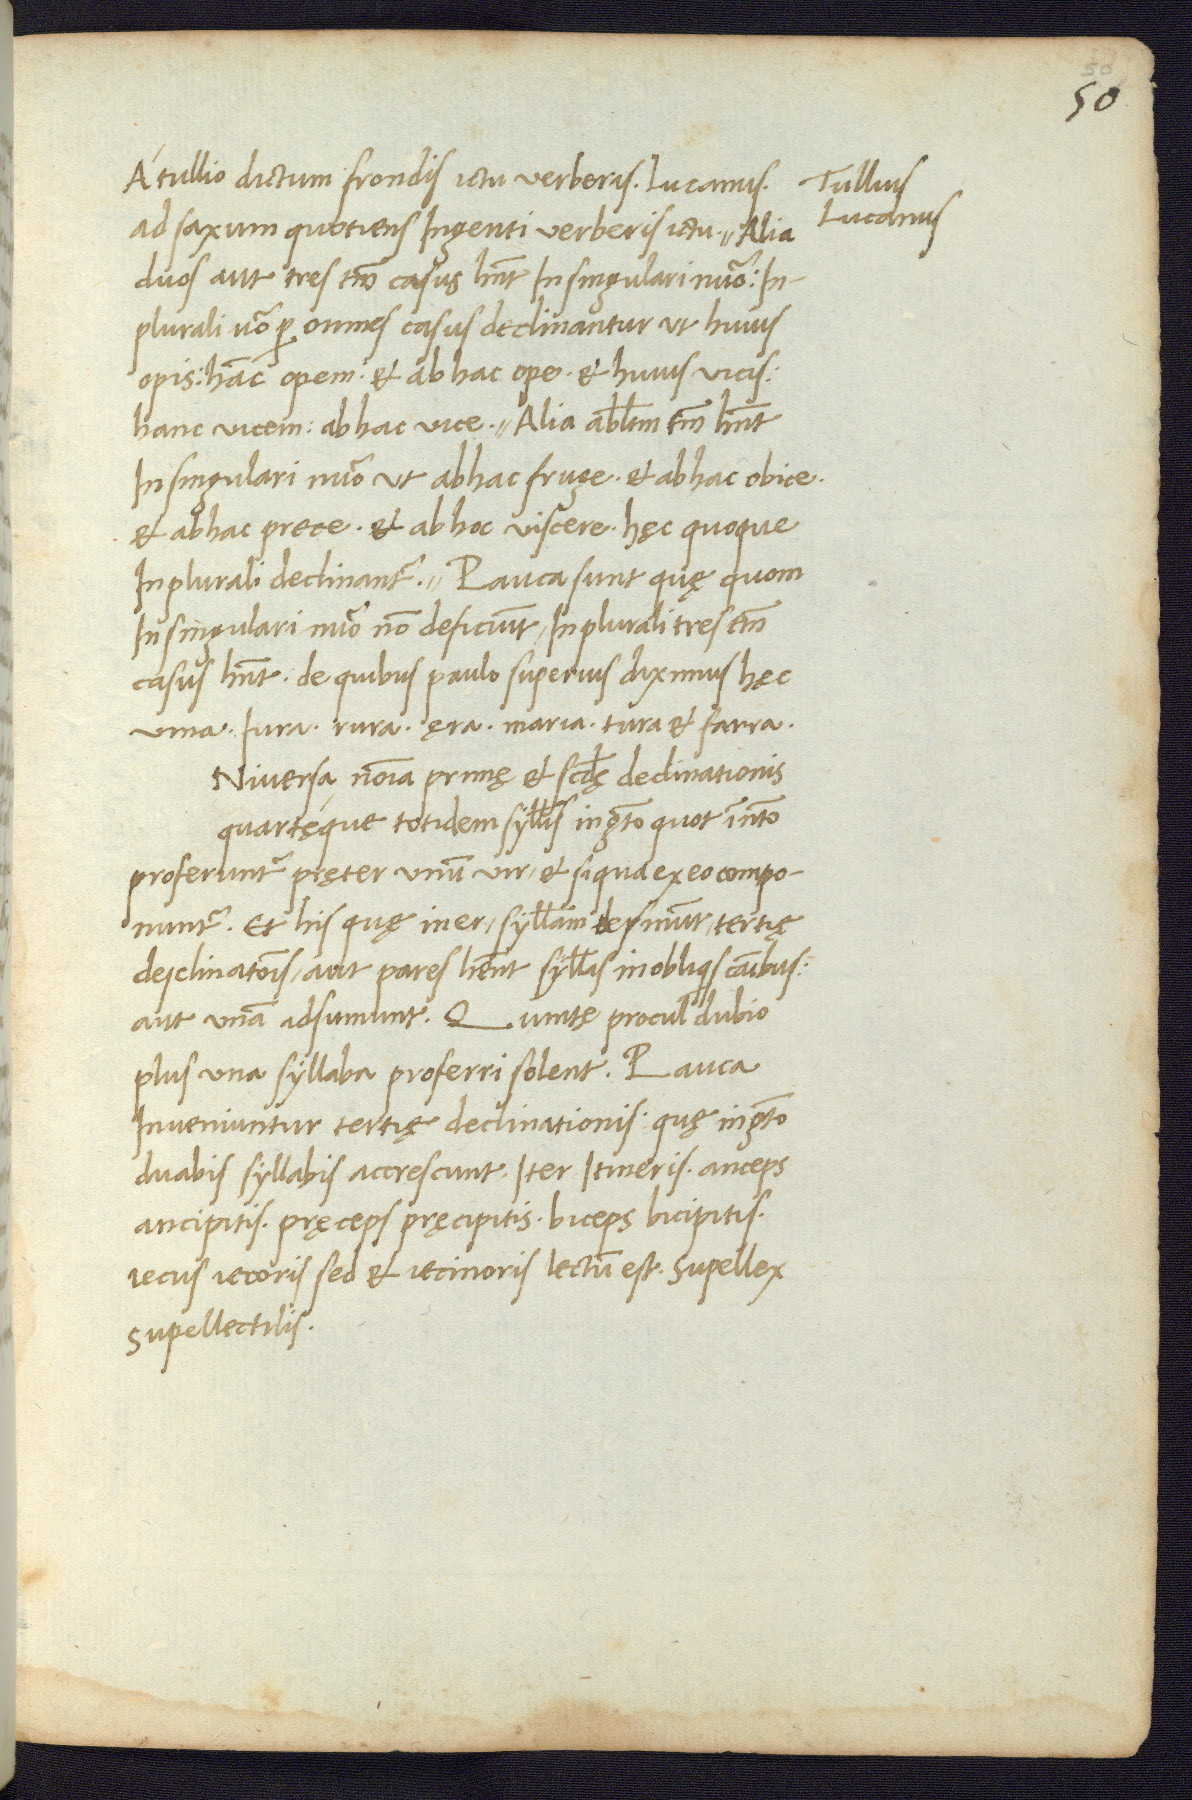 50
50
A tullio dictum frondis ictu verberis. Lucanus.
Tullius
Lucanus
ad saxum quotiens Ingenti verberis ictu. Alia
duos aut tres tm̄ casus hn̄t In singulari nu͂o: In-
plurali u͂o ꝑ omnes casus declinantur ut huius
opis: hāc opem: et ab hac ope. et huius vicis:
hanc vicem: ab hac vice. Alia ablt̄m tm̄ hn̄t
In singulari nu͂o ut ab hac fruge. et ab hac obice.
et ab hac prece. et ab hoc viscere. hęc quoque
In plurali declinant͂. Pauca sunt quę quom
In singulari nu͂o nō deficiūt, In plurali tres tm̄
casus hn̄t. de quibus paulo superius diximus hęc
vina. Iura. rura. ęra. maria. tura et farra.
Niversa nōia primę et scd̄ę declinationis
quartęque totidem syll̄is in gt̄o quot in n̄to
proferunt͂ pręter unū vir, et siqua ex eo compo-
nunt͂. Et his quę in er, syll̄am desinūt, tertię
declinatōis, aut pares hēnt syll̄is in obliqis cāibus:
aut unā adsumunt. Quintę procul dubio
plus una syllaba proferri solent. Pauca
Inveniuntur tertię declinationis: quę in gt̄o
duabis syllabis accrescunt. Iter Itineris. anceps
ancipitis. pręceps pręcipitis. biceps bicipitis.
iecus iecoris sed et iecinoris lectū est. Supellex
supellectilis.